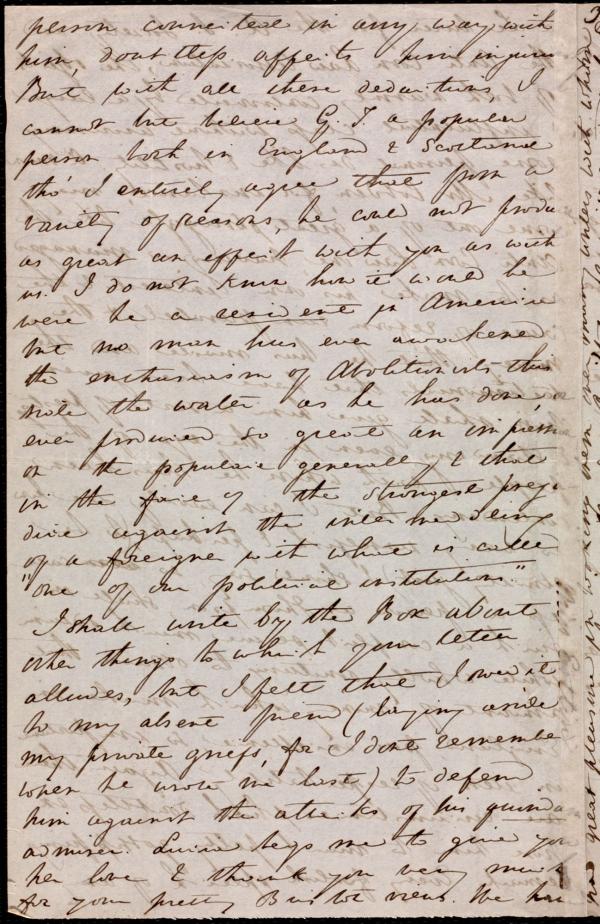 person connected in any way with
him, doubtless affects him injuri
But with all these deductions, I
cannot but believe G. T. a popular
person both in England & Scotland
tho' I entirely agree that from a
variety of reasons, he could not produ
as great an effect with you as with
us. I do not know how it would be
were he a resident in America
but no man has ever awakened
the enthusiasm of Abolitionists this
side the water as he has done, or
ever produced so great an impress
on the populace generally & that
in the face of the strongest preju
dice against the intermeddling
of a foreigner with what is called
"one of our political institutions."
I shall write by the Box about
other things to which your letter
alludes, but I felt that I owed it
to my absent friend (laying aside
my private griefs, for I dont remember
when he wrote me last) to defend
him against the attacks of his
admirer. Louisa begs me to give you
her love & thank you very much
for your pretty Bristol views. We have
great pleasure in working them over many with which